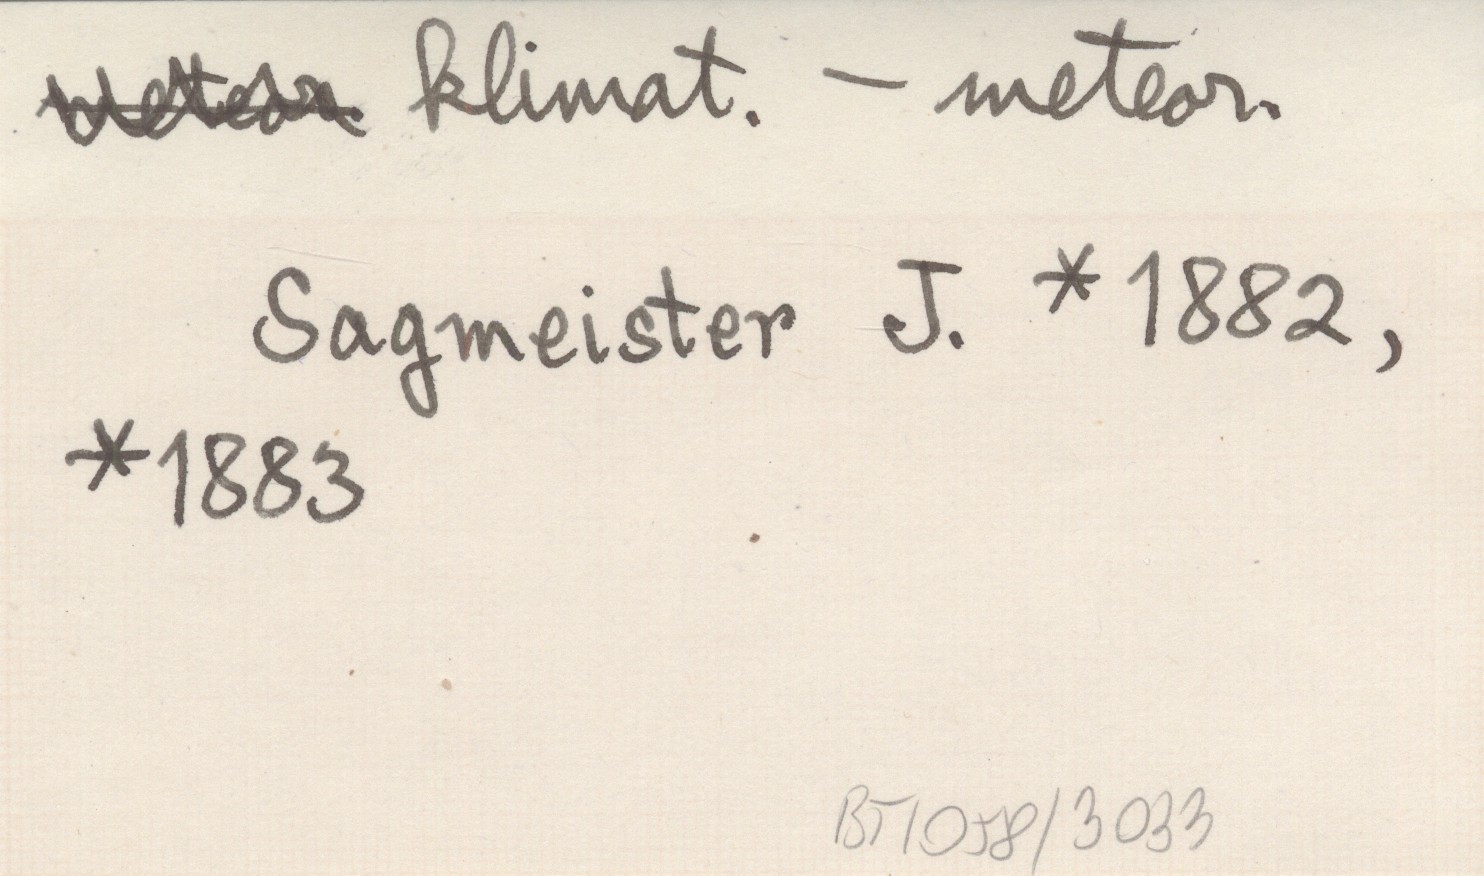 klimat. – meteor.
Sagmeister J. *1882,
*1883
BT1058/3033